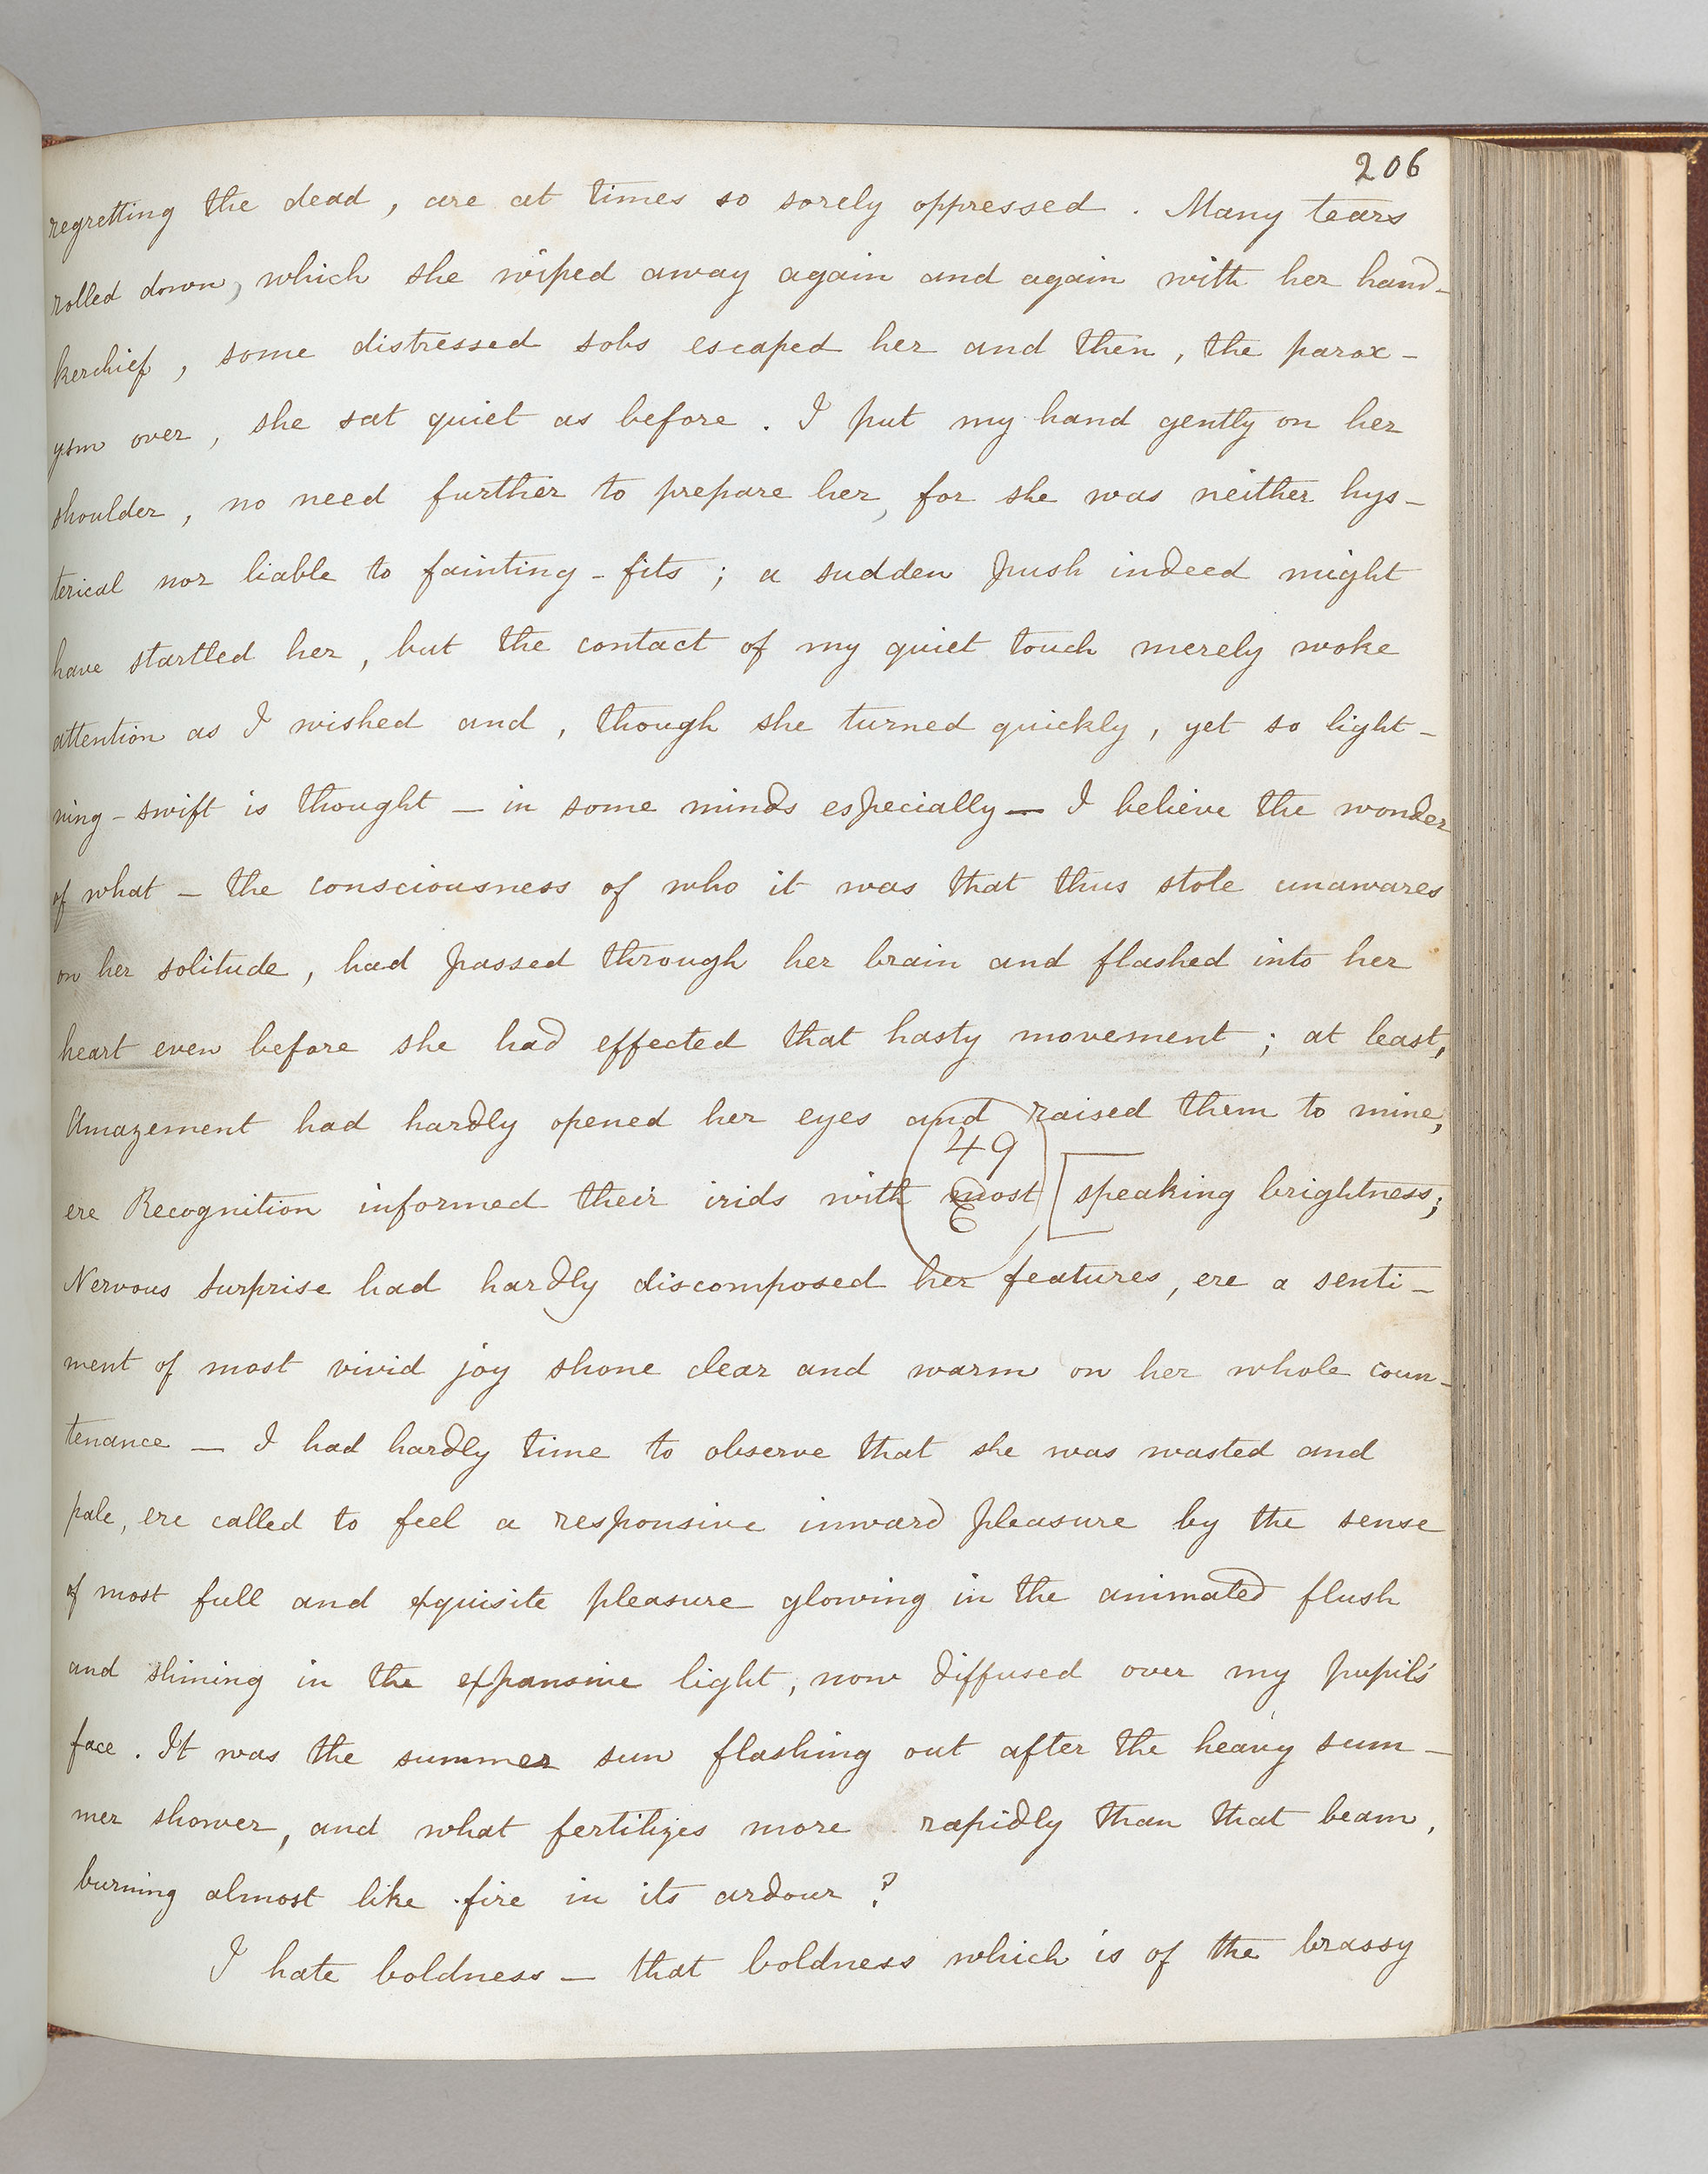 206
regretting the dead, are at times so sorely oppressed. Many tears
rolled down, which she wiped away again and again with her hand-
kerchief, some distressed sobs escaped her and then, the parox-
ysm over, she sat quiet as before. I put my hand gently on her
shoulder, no need further to prepare her, for she was neither hys-
terical nor liable to fainting-fits; a sudden push indeed might
have startled her, but the contact of my quiet touch merely woke
attention as I wished and, though she turned quickly, yet so light-
ning-swift is thought — in some minds especially — I believe the wonder
of what — the consciousness of who it was that thus stole unawares
on her solitude, had passed through her brain and flashed into her
heart even before she had effected that hasty movement; at least,
Amazement had hardly opened her eyes and raised them to mine,
49
ere Recognition informed their irids with most [speaking brightness;
6
Nervous Surprise had hardly discomposed her features, ere a senti-
ment of most vivid joy shone clear and warm on her whole coun-
tenance — I had hardly time to observe that she was wasted and
pale, ere called to feel a responsive inward pleasure by the sense
of most full and exquisite pleasure glowing in the animated flush
and shining in the expansive light, now diffused over my pupil's
face. It was the summer sun flashing out after the heavy sum-
mer shower, and what fertilizes more rapidly than that beam,
burning almost like fire in its ardour?
I hate boldness — that boldness which is of the brassy